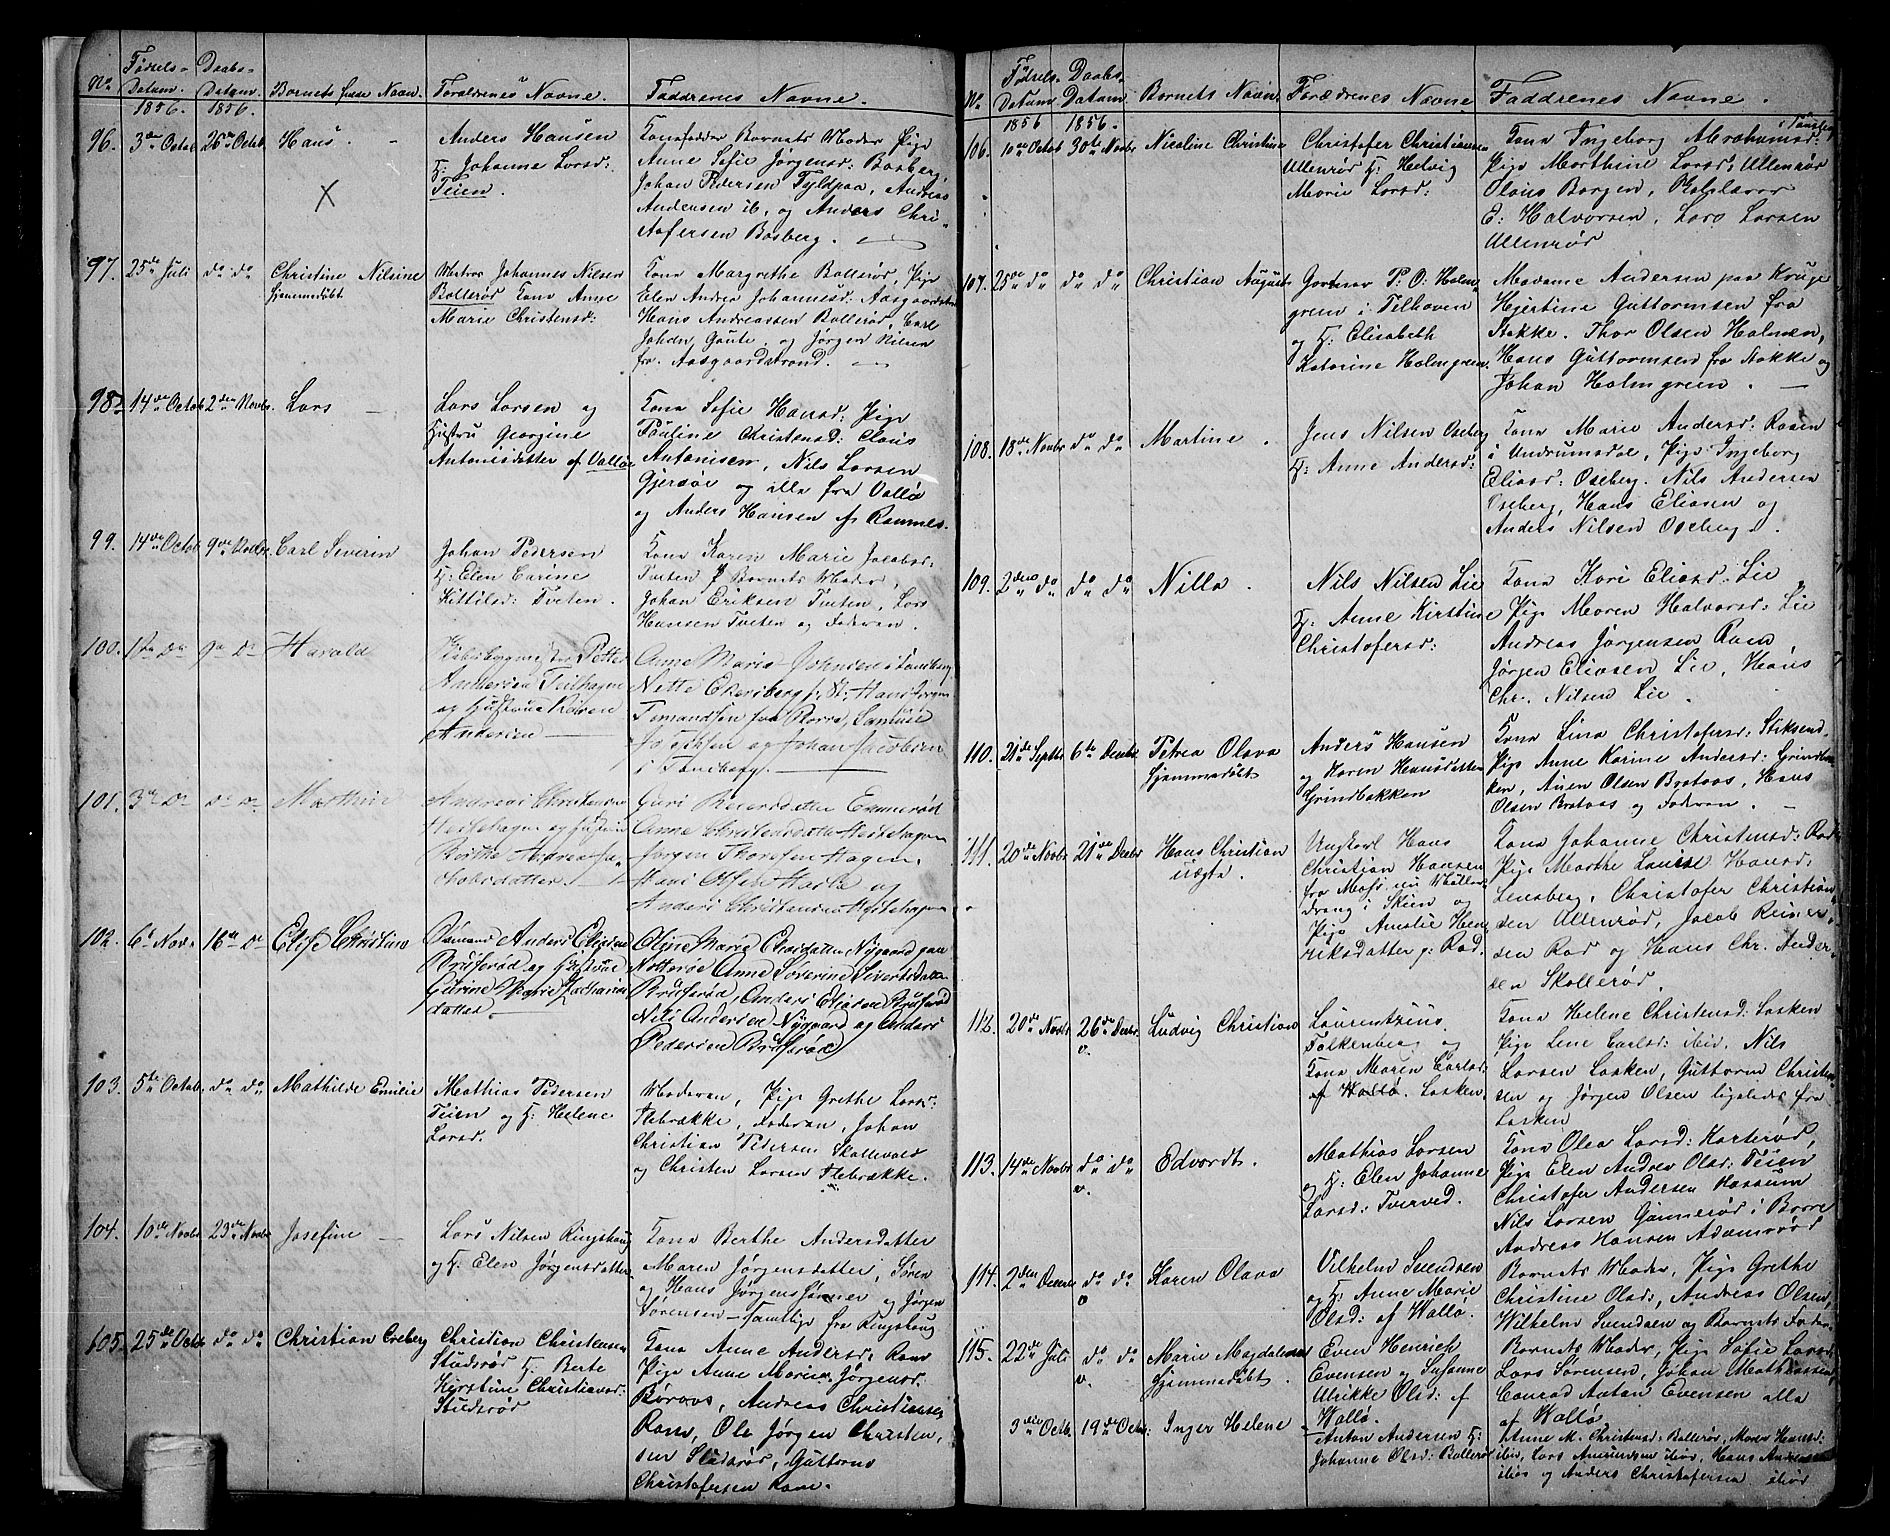 No
Fødsels-
Datum.
1856.
Daabs-
Datum.
1856.
Barnets fulde Navn.
Forældrenes Navne.
Faddrenes Navne.
96.
3die Octob.
26de Octob.
Hans -
Anders Hansen
H: Johanna Larsd:
Teien.
Kona fadder Barnets Moder Pige
Anne Sofie Jørgensd: Basberg,
Johan Pedersen Fyldpaa, Andreas
Andersen ib, og Anders Chri-
stofersen Basberg.
97.
25de Juli
do do
Christine Nilsine
hjemmedøbt
Matros Johannes Nilsen
Bollerød Kona Anne
Marie Christensd:
Kona Margrethe Bollerød, Pige
Elen Andrea Johannesd: Aasgaardstrand
Hans Andreassen Bollerød, Carl
Johan Gaute, og Jørgen Nilsen
fra Aasgaardstrand.
98.
14de Octob.
2den Novbr.
Lars -
Lars Larsen og
Hustru Georgine
Antonisdatter af Valløe
Kona Sofie Hansd: Pige
Pauline Christensd: Claus
Antonisen, Nils Larsen
Gjersøe og alle fra Vallø
og Anders Hansen af Ramnes.
99.
14de Octob.
9de Novbr.
Carl Severin
Johan Pedersen
H: Elen Carine
Kittilsd: Tveten.
Kona Karen Marie Jacobsd:
Tveten P Barnets Moder,
Johan Eriksen Tveten, Lars
Hansen Tveten og Faderen.
100.
do
9de do
Harald
Skibsbygmester Petter
Andersen Teilhagen
og Hustrue Karen
Andersen
Anne Marie Johnsen i Tønsberg
Nette Ekersberg
fra Borre, Samuel
og Johan Jacobsen
i Tønsberg.
101.
3de do
do do
Mathias
Andreas Christensen
Hestehagen og Hustrue
Berthe Andrea Ja-
cobsdatter.
Guri Reiersdatter Emmerød
Anne Christensdatter Hestehagen
Jørgen Thoresen Hagen,
Hans Olsen Hasle og
Anders Christensen Hestehagen
102.
6te Nov.
16de do
Elise Christine
Anders Eliesen
Bruserød og Hustrue
Gurine Marie Zacharias
datter
Oline Marie Olausdatter Nygaard paa
Nøtterøe Anne Severine Sivertsdatter
Bruserød, Anders Eliesen Bruserød
Nils Andersen Nygaard og Anders
Pedersen Bruserød
103.
5te Octob.
do do
Mathilde Emilie
Mathias Pedersen
Teien og H: Helene
Larsd.
Moderen, Pige Grethe Larsd:
Flebrække, Faderen, Johan
Christian Pedersen Skallevold
og Christen Larsen Flebrække.
104.
10de Novbr
23de Novbr
Josefine -
Lars Nilsen Ringshaug
og H: Elen Jørgensdatter
Kona Berthe Andersdatter
Maren Jørgensdatter, Søren
og Hans Jørgenssønner og Jørgen
Sørensen - samtlige fra Ringshaug
105.
25de Octob
do do
Christian Greberg
Christian Christensen
Studsrød H: Berte
Kirstine Christiansd:
Studsrød
Kona Anne Andersd: Ram
Pige Anne Marie Jørgensd.
Børaas, Andreas Christiansen
Ram, Ole Jørgen Christen,
sen Studsrød, Guttorm
Christofersen Ram.
No
Fødsels-
Datum
1856
Daabs-
Datum
1856.
Barnets Navn.
Forældrenes Navne
Faddrenes Navne.
106.
10de Octob
30te Novbr
Nicoline Christine
Christofer Christiansen
Ullenrød H: Helvig
Marie Larsd:
Kona Ingeborg Abrahamsd: i Tønsberg
Pige Marthine Larsd: Ullenrød
Olaus Borgen,
E: Halvorsen, Lars Larsen
Ullenrød
107.
25de do
do do
Christian August
Garver P: O: Holm-
green i Telhaven
og H: Elisabeth
Katarine Holmgreen.
Madame Andersen paa Kruge
Hjertine Guttormsen fra
Bakke. Thor Olsen Holmen,
Hans Guttormsen fra Stokke og
Johan Holmgreen. -
108.
18de Novbr
do do
Martine.
Jens Nilsen Oseberg
H: Anne Andersd:
Kona Marie Andersd: Rosen
i Undrumsdal, Pige Ingeborg
Eliasd: Oseberg. Nils Andersen
Oseberg, Hans Eliasen og
Anders Nilsen Oseberg.
109.
2den do
do do
Nilla.
Nils Nilsen Lie
H: Anne Kirstine
Christofersd:
Kona Kari Eliasd: Lie
Pige Maren Halvorsd: Lie
Andreas Jørgensen Ram
Jørgen Eliasen Lie, Hans
Chr. Nilsen Lie.
110.
21de Septbr
6te Decbr
Petrea Olava
hjemmedøbt
Anders Hansen
og Karen Hansdatter
Grindbakken
Kona Lina Christofersd: Stiksend
Pige Anne Karine Andersd: Grindbak-
ken, Anen Olsen Brataas, Hans
Olsen Brataas og Faderen. -
111.
20de Novbr
21de Decbr
Hans Christian
uægte.
Ungkarl Hans
Christian Hansen
fra Moss, nu Møller-
dreng i Skien og
Pige Amalie Hen-
riksdatter p: Rad.
Kona Johanne Christensd: Rad
Pige Marthe Lauise Hansd:
Lensberg, Christofer Christian-
sen Ullenrød, Jacob Reiner-
sen Rad og Hans Chr. Ander-
sen Skollerød.
112.
20de Novbr
26de Decbr.
v.
Ludvig Christian
Laurentzius
Falkenberg og
Kona Maren Carlsd:
af Vallø. Lasken
Kona Helene Christensd: Lasken
Pige Lene Carlsd: ibid, Nils
Larsen Lasken, Guttorm Christen-
sen og Jørgen Olsen ligeledes fra
Lasken
113.
14de Novbr
do do
v.
Edvardt.
Mathias Larsen
og H: Elen Johanne
Larsd: Tverved.
Kona Olea Larsd: Korterød,
Pige Elen Andrea Olsd: Teien
Christofer Andersen Hassum
Nils Larsen Gannerød i Borre
Andreas Hansen Adamrød
114.
2den Decbr
do do
v
Karen Olava
Vilhelm Svendsen
og H: Anne Marie
Olsd: af Vallø.
Barnets Moder, Pige Grethe
Christine Olsd:, Andreas Olsen,
Wilhelm Svendsen og Barnets Fader.
115.
22de Juli
do do
v.
Marie Magdalena
hjemmedøbt.
Even Henrich
Evensen og Susanne
Ulrikke Olsd: af
Vallø.
Barnets Moder, Pige Sofie Larsd:
Lars Sørensen, Johan Mathiassen,
Conrad Anton Evensen alle
af Vallø
3die Octb.
19de Octob:
Inger Helene
Anton Andersen H:
Johanne Olsd: Bollerød
Anne M. Christensd: Bollerød, Maren Hansd:
ibid, Lars Amundsen ibid, Hans Andersen
ibid og Anders Christofersen ibid